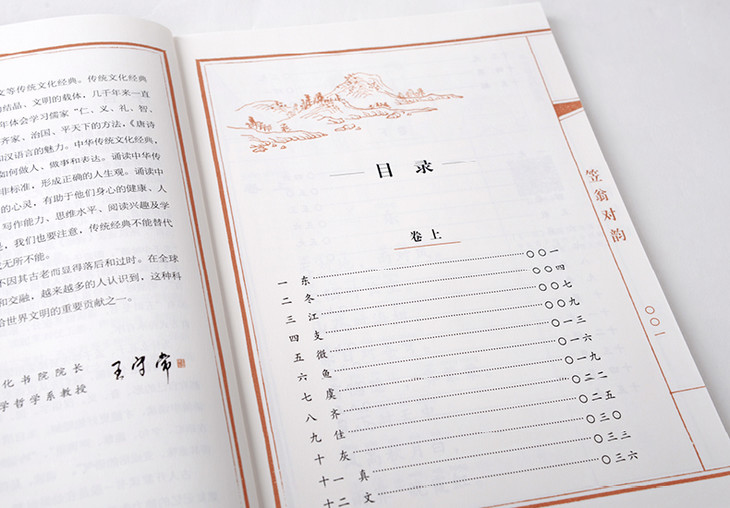 文等传统文化经典。传统文化经典
结晶、文明的载体，几千年来一直
年体会学习儒家“仁、义、礼、智、
齐家、治国、平天下的方法，《唐诗
和汉语言的魅力。中华传统文化经典，
如何做人、做事和表达。诵读中华传
非标准，形成正确的人生观。诵读中
的心灵，有助于他们身心的健康、人
写作能力、思维水平、阅读兴趣及学
是，我们也要注意，传统经典不能替代
无所不能。
不因其古老而显得落后和过时。在全球
和交融，越来越多的人认识到，这种科
给世界文明的重要贡献之一。
化书院院长
学哲学系教授
王守常
目录
卷上
一 东 〇〇一
二 冬 〇〇四
三 江 〇〇七
四 支 〇〇九
五 微 〇一三
六 鱼 〇一六
七 虞 〇一九
八 齐 〇二二
九 佳 〇二五
十 灰 〇三〇
十一 真 〇三三
十二 文 〇三六
笠翁对韵
〇〇一